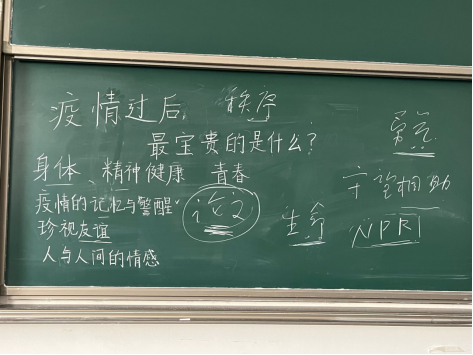 疫情过后, 秩序
最宝贵的是什么?
勇气
身体、精神健康 青春
守望相助
疫情的记忆与警醒"
论文
生命
NPRI
珍视友谊
人与人间的情感